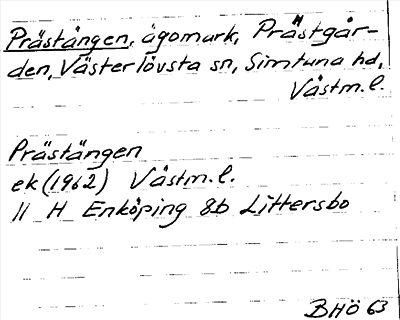 Prästängen, ägomark, Prästgår-
den, Västerlövsta sn, Simtuna hd,
Västm.l.
Prästängen
ek (1962) Västm.l.
11 H Enköping 8b Littersbo
BHÖ 63